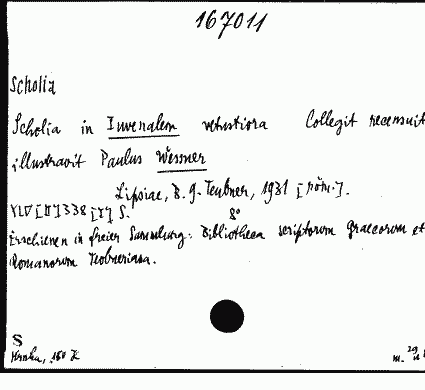 167011
Scholia
Scholia in Iuvenalem vetustiora Collegit recensuit
illustravit Paulus Wessner
Lipsiae, B. G. Teubner, 1931 [röm.].
XLV [II] 338 [1] S. 8°
Erschienen in freier Sammlung: Bibliotheca scriptorum Graecorum et
Romanorum Teubneriana.
S